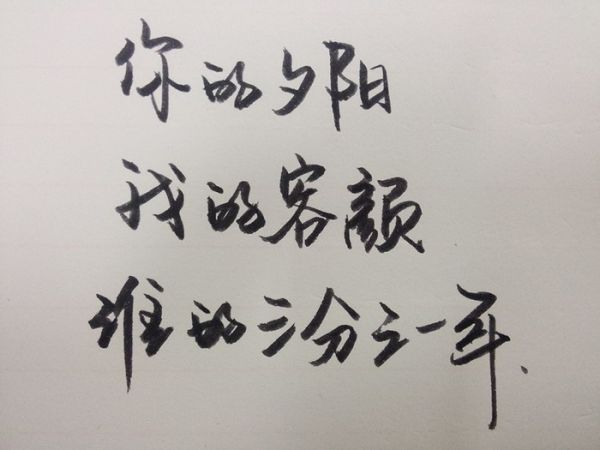 你的夕阳
我的容颜
谁的三分之一年.